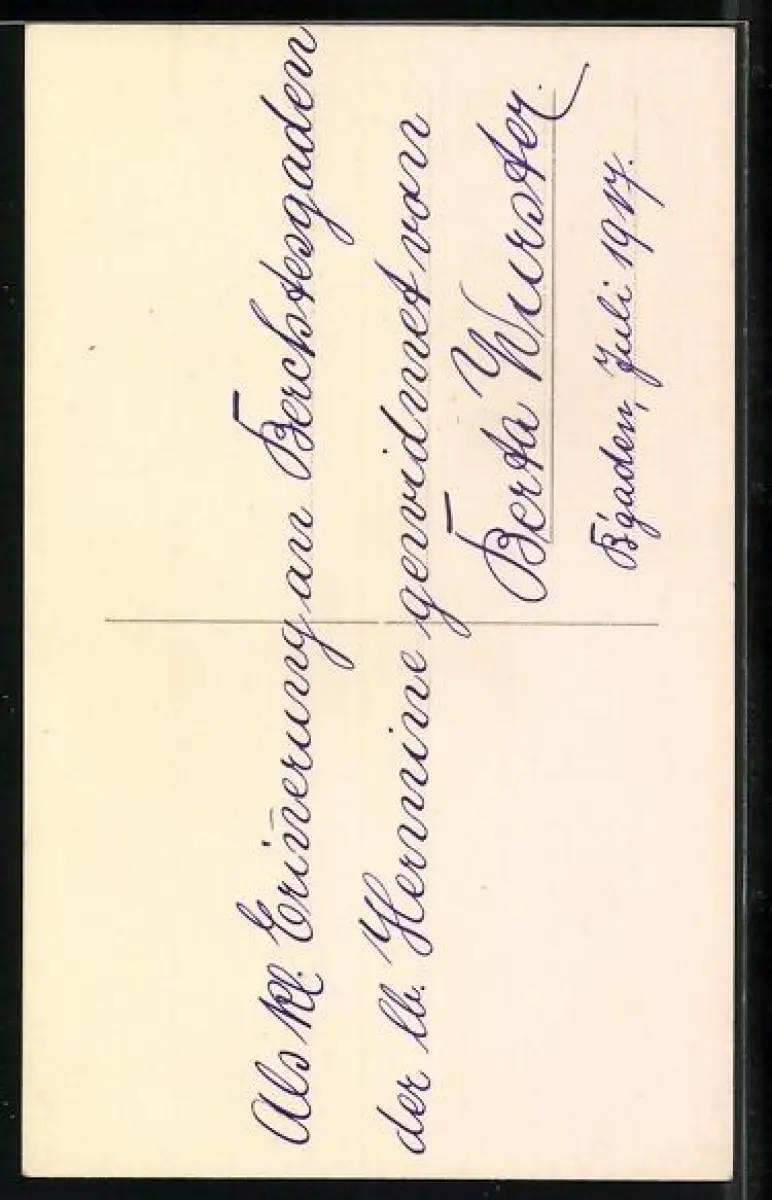 Als kl. Erin̄erung an Berchtesgaden
der lb. Hermine gewidmet von
Berta Wurster.
B'gaden, Juli 1917.